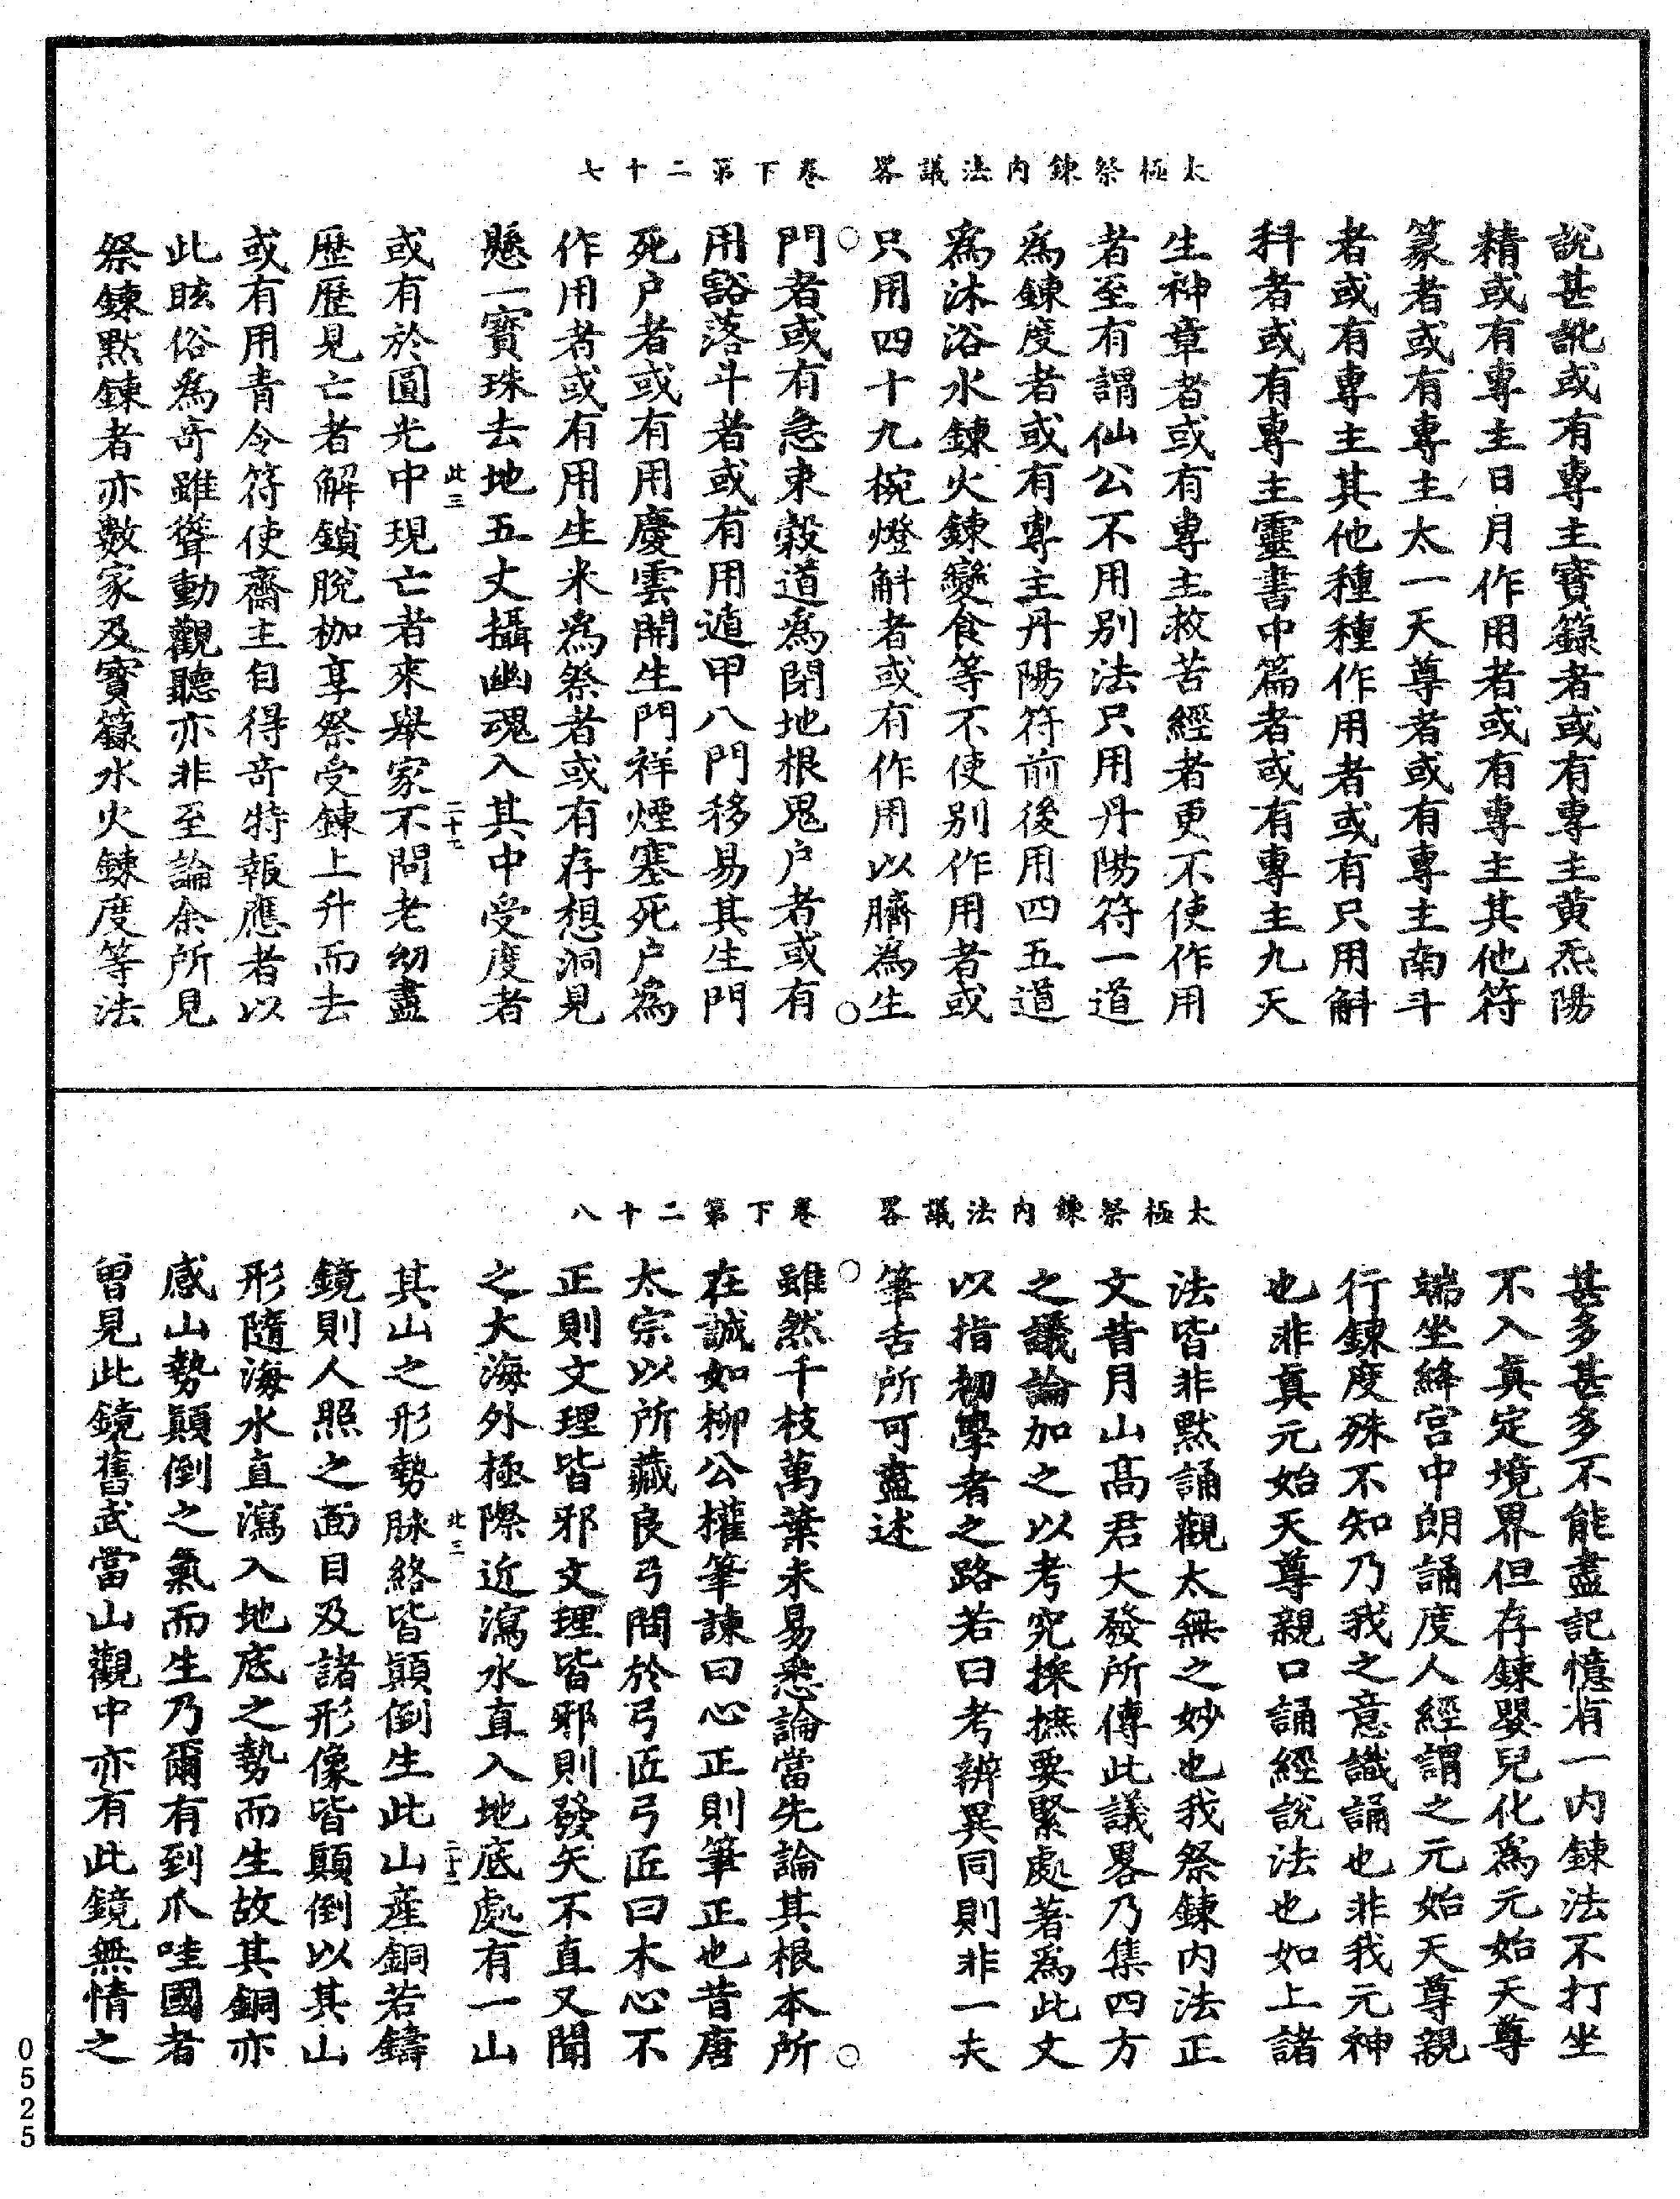 太極祭鍊內法議畧　卷下第二十七
說甚訛或有專主寶籙者或有專主黃炁陽
精或有專主日月作用者或有專主其他符
篆者或有專主太一天尊者或有專主南斗
者或有專主其他種種作用者或有只用斛
科者或有專主靈書中篇者或有專主九天
生神章者或有專主救苦經者更不使作用
者至有謂仙公不用別法只用丹陽符一道
為鍊度者或有專主丹陽符前後用四五道
為沐浴水鍊火鍊變食等不使別作用者或
只用四十九椀燈斛者或有作用以臍為生
門者或有急束穀道為閉地根鬼户者或有
用豁落斗者或有用遁甲八門移易其生門
死户者或有用慶雲開生門祥煙塞死户為
作用者或有用生米為祭者或有存想洞見
懸一寶珠去地五丈攝幽魂入其中受度者
此三　二十七
或有於圓光中現亡者來舉家不問老幼盡
歷歷見亡者解鎖脫枷享祭受鍊上升而去
或有用青令符使齋主自得奇特報應者以
此眩俗為奇雖聳動觀聽亦非至論余所見
祭鍊默鍊者亦數家及寶籙水火鍊度等法
太極祭鍊內法議畧　卷下第二十八
甚多甚多不能盡記憶有一內鍊法不打坐
不入真定境界但存鍊嬰兒化為元始天尊
端坐絳宮中朗誦度人經謂之元始天尊親
行鍊度殊不知乃我之意識誦也非我元神
也非真元始天尊親口誦經說法也如上諸
法皆非默誦觀太無之妙也我祭鍊內法正
文昔月山高君大發所傳此議畧乃集四方
之議論加之以考究採摭要緊處著為此文
以指初學者之路若曰考辨異同則非一夫
筆舌所可盡述
雖然千枝萬葉未易悉論當先論其根本所
在誠如柳公權筆諫曰心正則筆正也昔唐
太宗以所藏良弓問於弓匠弓匠曰木心不
正則文理皆邪文理皆邪則發矢不直又聞
之大海外極際近瀉水直入地底處有一山
此三　二十三
其山之形勢脉絡皆顛倒生此山產銅若鑄
鏡則人照之面目及諸形像皆顛倒以其山
形隨海水直瀉入地底之勢而生故其銅亦
感山勢顛倒之氣而生乃爾有到爪哇國者
曾見此鏡舊武當山觀中亦有此鏡無情之
0525